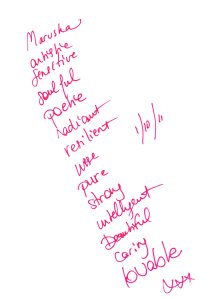 Maruska
artistic
sensitive
soulful
poetic
radiant
resilient
wise
pure
strong
intelligent
beautiful
caring
lovable
xxx
1/10/11